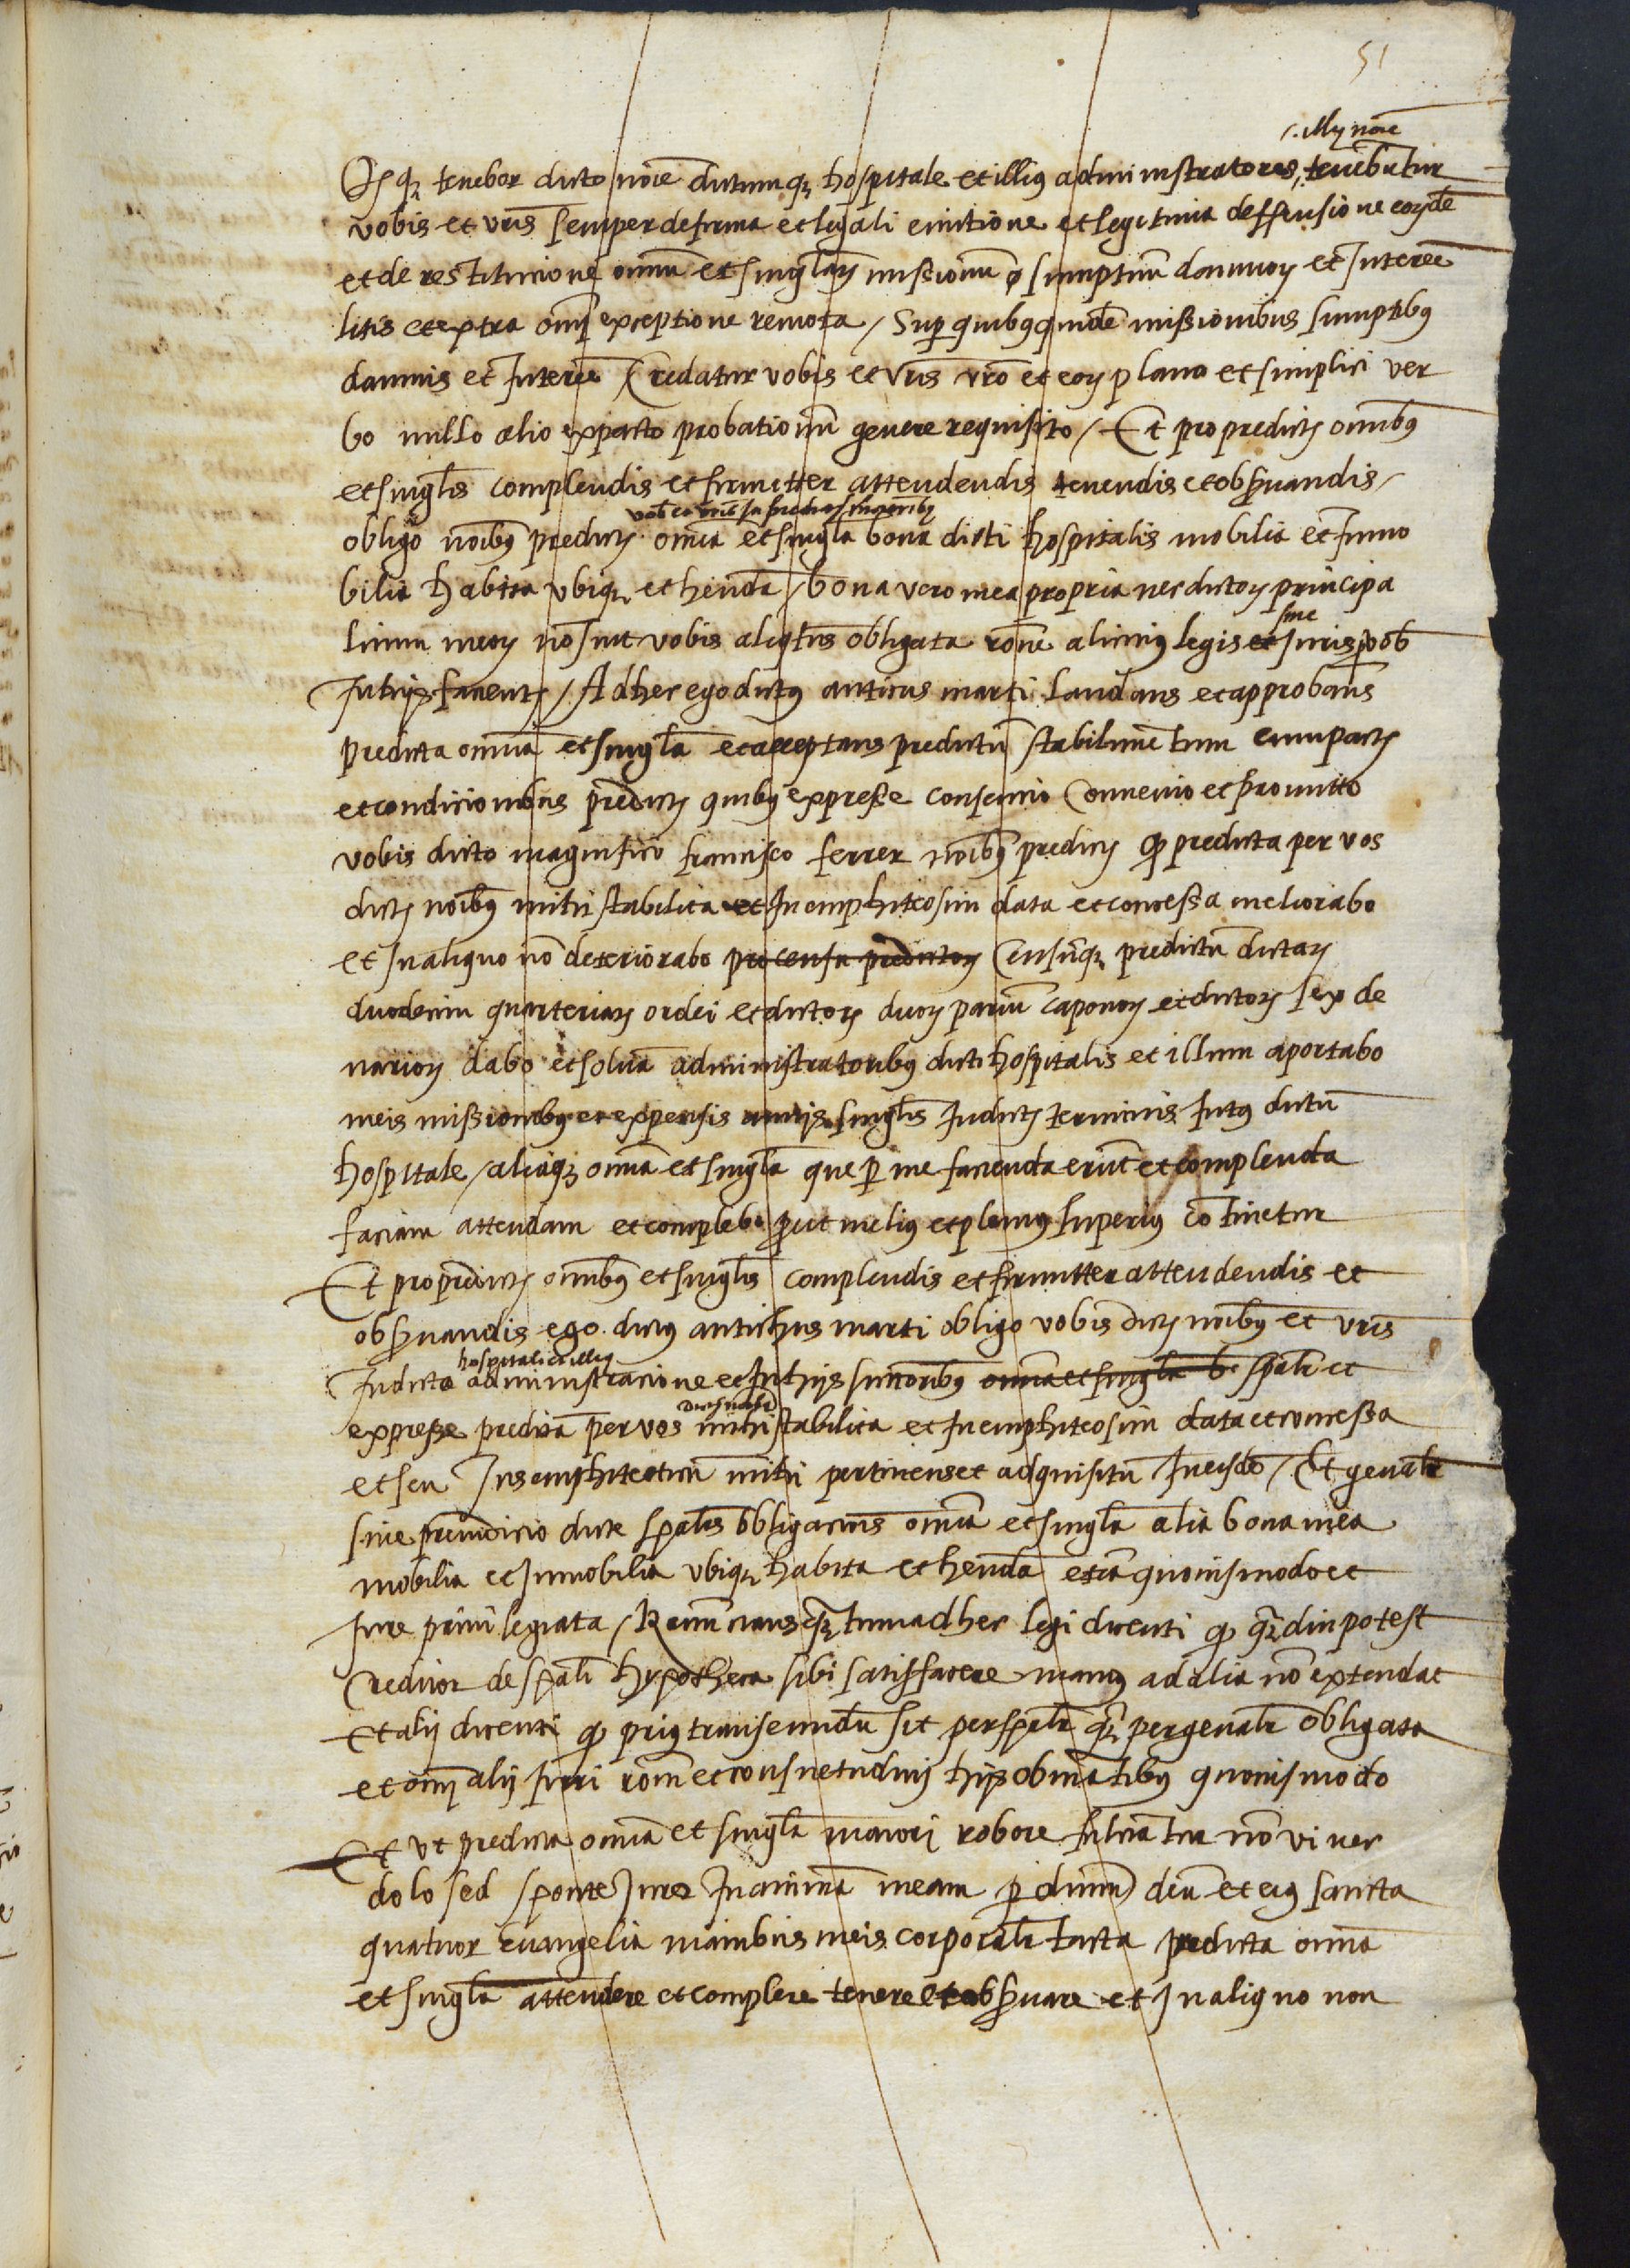 51
illiq noīe
Itaq; tenebor dicto noīe dictumq; hospitale et illius administratores, tenebūtur
vobis et vr̄is semper de firma et legali evictione et legitima deffensione eorūdē
et de restitucione omniū et singlarū missionum sumptuū dannorū et Interēē
litis et extra omī exceptione remota / Sup quibusquidē missionibus sumptibus
dannis et Interēē Credatur vobis et vr̄is vr̄o et eorū plano et simplici ver
bo nullo alio expecto probationū genere requisito / Et pro predictis om̄ibus
et singlis complendis et firmitter attendendis tenendis et observandis /
obligo noībus predictis omīa et singla bona dicti hospitalis mobilia et Immo
bilia habita ubiq; et hēnda / bona vero mea propria nec dictorū principa
sive
lium meorū nō sint vobis aliqt̄ns obligata rōne alicuius legis et Juris p ob
In hijs facientis / Ad hec ego dictus anticus marti laudans et approbans
predicta omīa et singla et acceptans predictū stabilimentum cum pactis
et condicionibus predictis quibus expresse consencio Convenio et promitto
vobis dicto magnifico francisco ferrer noībus predictis q predicta per vos
dictis noībus mihi stabilita et In emphiteosim data et concessa meliorabo
et In aliquo nō deteriorabo pro censu predictorū Censūq; predictū dictarū
duodecim quarteriarū ordei et dictorū duorū pariū caponorū et dictorū sex de
nariorū dabo et solvā administratoribus dicti hospitalis et illum aportabo
meis missionibus et expensis annis singlis In dictis terminis Intus dictū
hospitale / aliaq; omīa et singla que p me facienda erūt et complenda
faciam attendam et complebo prout melius et plenius superius cōtinetur
Et pro predictis om̄ibus et singlis complendis et firmitter attendendis et
observandis ego dictus antichus marti obligo vobis dictis noībus et vr̄is
hospitali et illius
In dicta administracione et In hijs successoribus omīa et singla b spāliī et
dictis noībus
expresse predicta per vos mihi stabilita et In emphiteosim data et concessa
et seu Jus emphiteoticū mihi pertinens et adquisitū In eisdē / Et genālr
sine preiudicio dicte spālis obligacionis omīa et singla alia bona mea
mobilia et Inmobilia ubiq; habita et hēnda etiā quovismodo et
Jure privilegiata / Renūcians quātum ad hec legi dicenti q quādiu potest
Creditor de spāli hypotheca sibi satisfacere manus ad alia nō extendat
Et alij dicenti q prius transeundū sit per spālr q per genālr obligata
et omī alij Juri rōni et consuetudinij hijs obviātibus quovismodo
Et ut predicta omīa et singla maiori robore fulciātur nō vi nec
dolo sed sponte Juro In animā meam p dn̄um deū et eius sancta
quatuor evangelia manibus meis corporālr tacta predicta omīa
et singla attendere et complere tenere et observare et In aliquo non